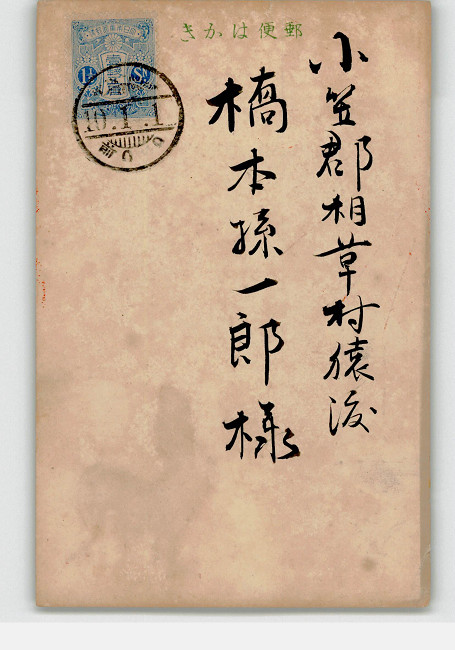 郵便はがき
小笠郡相草村猿渡
橋本孫一郎様
1½ Sn.
10.1.1
前0-9